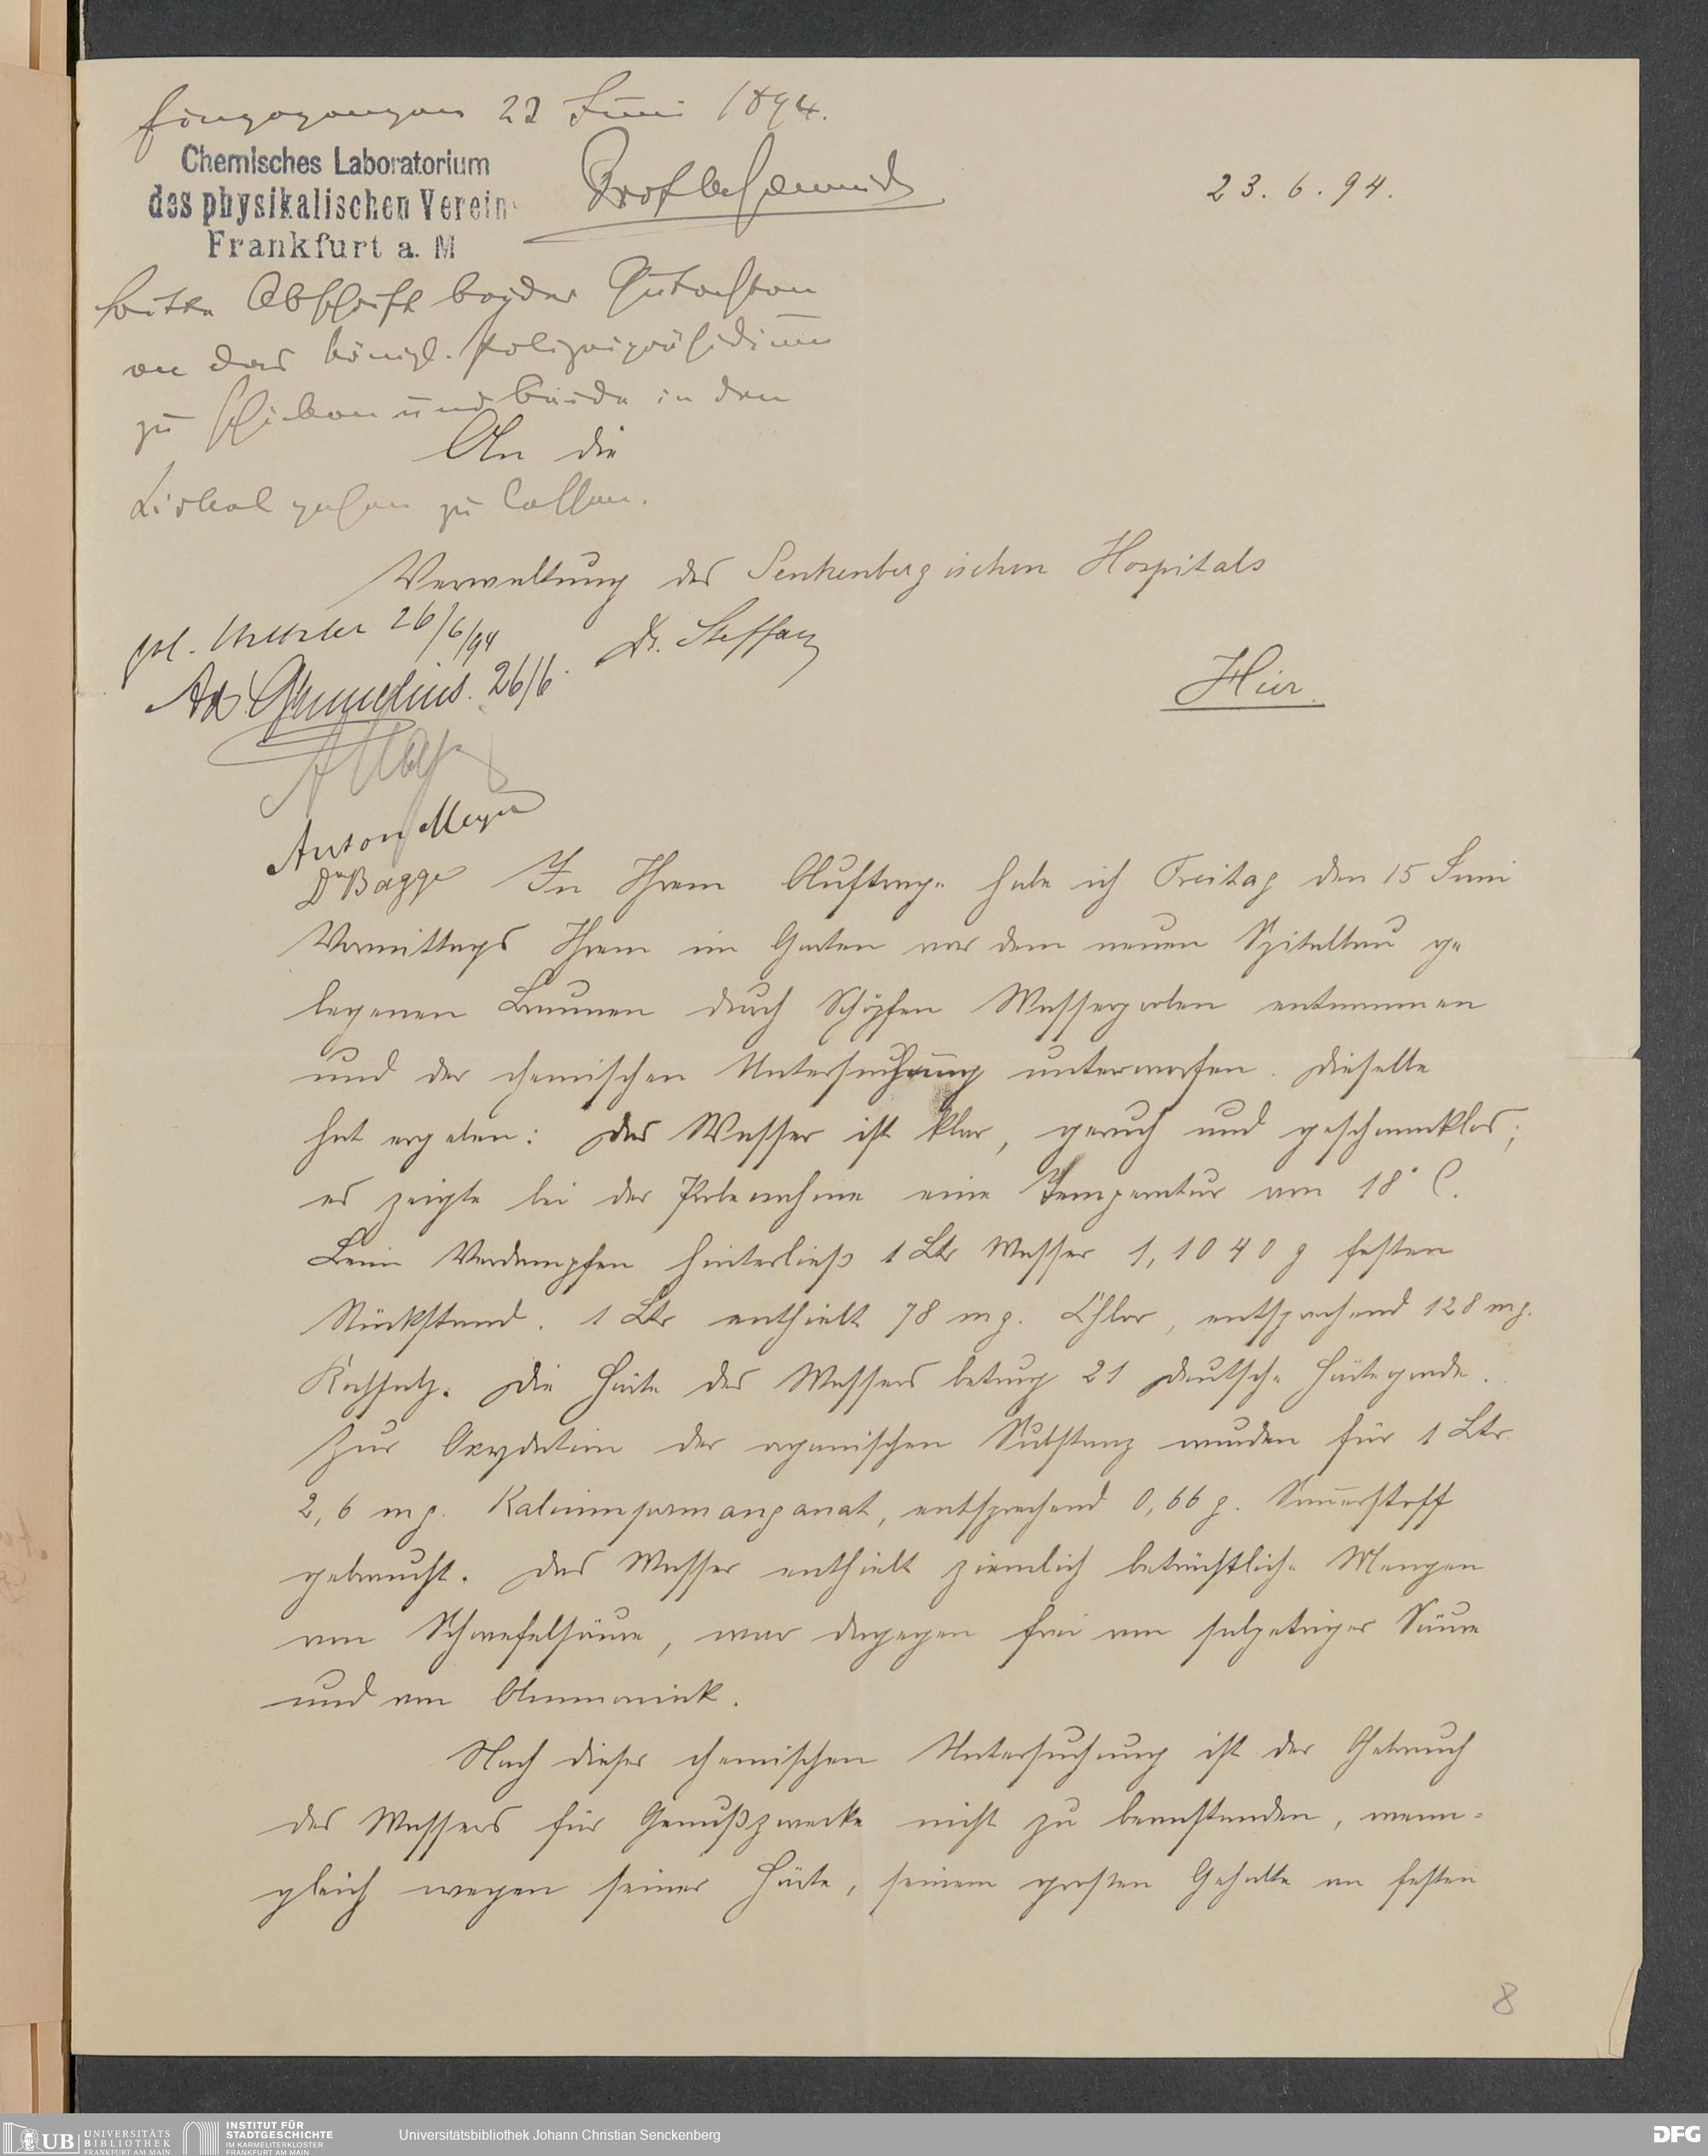 Eingegangen 23 Juni 1894.
Chemisches Laboratorium
des physikalischen Verein
Frankfurt a. M
23. 6. 94.
bitte Abschrift beyder Gutachten
an das königl. Polizeipräsidium
zu schicken und beide in den
An die
Zirkel gehen zu lassen.
Verwaltung des Senkenbergischen Hospitals
gel. 26/6/94 Dr. Steffan
Ad. 26/6.
Hier.
Anton Meyer
Dr Bagge
In Ihrem Auftrage habe ich Freitag den 15 Juni
Vormittags Ihrem im Garten vor dem neuen Spitalbau ge
legenen Brunnen durch Schöpfen Wasserproben entnommen
und der chemischen Untersuchung unterworfen. Dieselbe
hat ergeben: Das Wasser ist klar, geruch und geschmacklos;
es zeigte bei der Probenahme eine Temperatur von 18° C.
Beim Verdampfen hinterließ 1 Ltr Wasser 1,1040 g festen
Rückstand. 1 Ltr enthielt 78 mg. Chlor, entsprechend 128 mg.
Kochsalz. Die Härte des Wassers betrug 21 deutsche Härtegrade.
Zur Oxydation der organischen Substanz wurden für 1 Ltr.
2,6 mg. Kaliumpermanganat, entsprechend 0,66 g. Sauerstoff
gebraucht. Das Wasser enthielt ziemlich beträchtliche Mengen
von Schwefelsäure, war dagegen frei von salpetriger Säure
und von Ammoniak.
Nach dieser chemischen Untersuchung ist der Gebrauch
des Wassers für Genußzwecke nicht zu beanstanden, wenn-
gleich wegen seiner Härte, seinem grosten Gehalte an festen
8
UB UNIVERSITÄTS
BIBLIOTHEK
FRANKFURT AM MAIN
INSTITUT FÜR
STADTGESCHICHTE
IM KARMELITERKLOSTER
FRANKFURT AM MAIN
Universitätsbibliothek Johann Christian Senckenberg
DFG